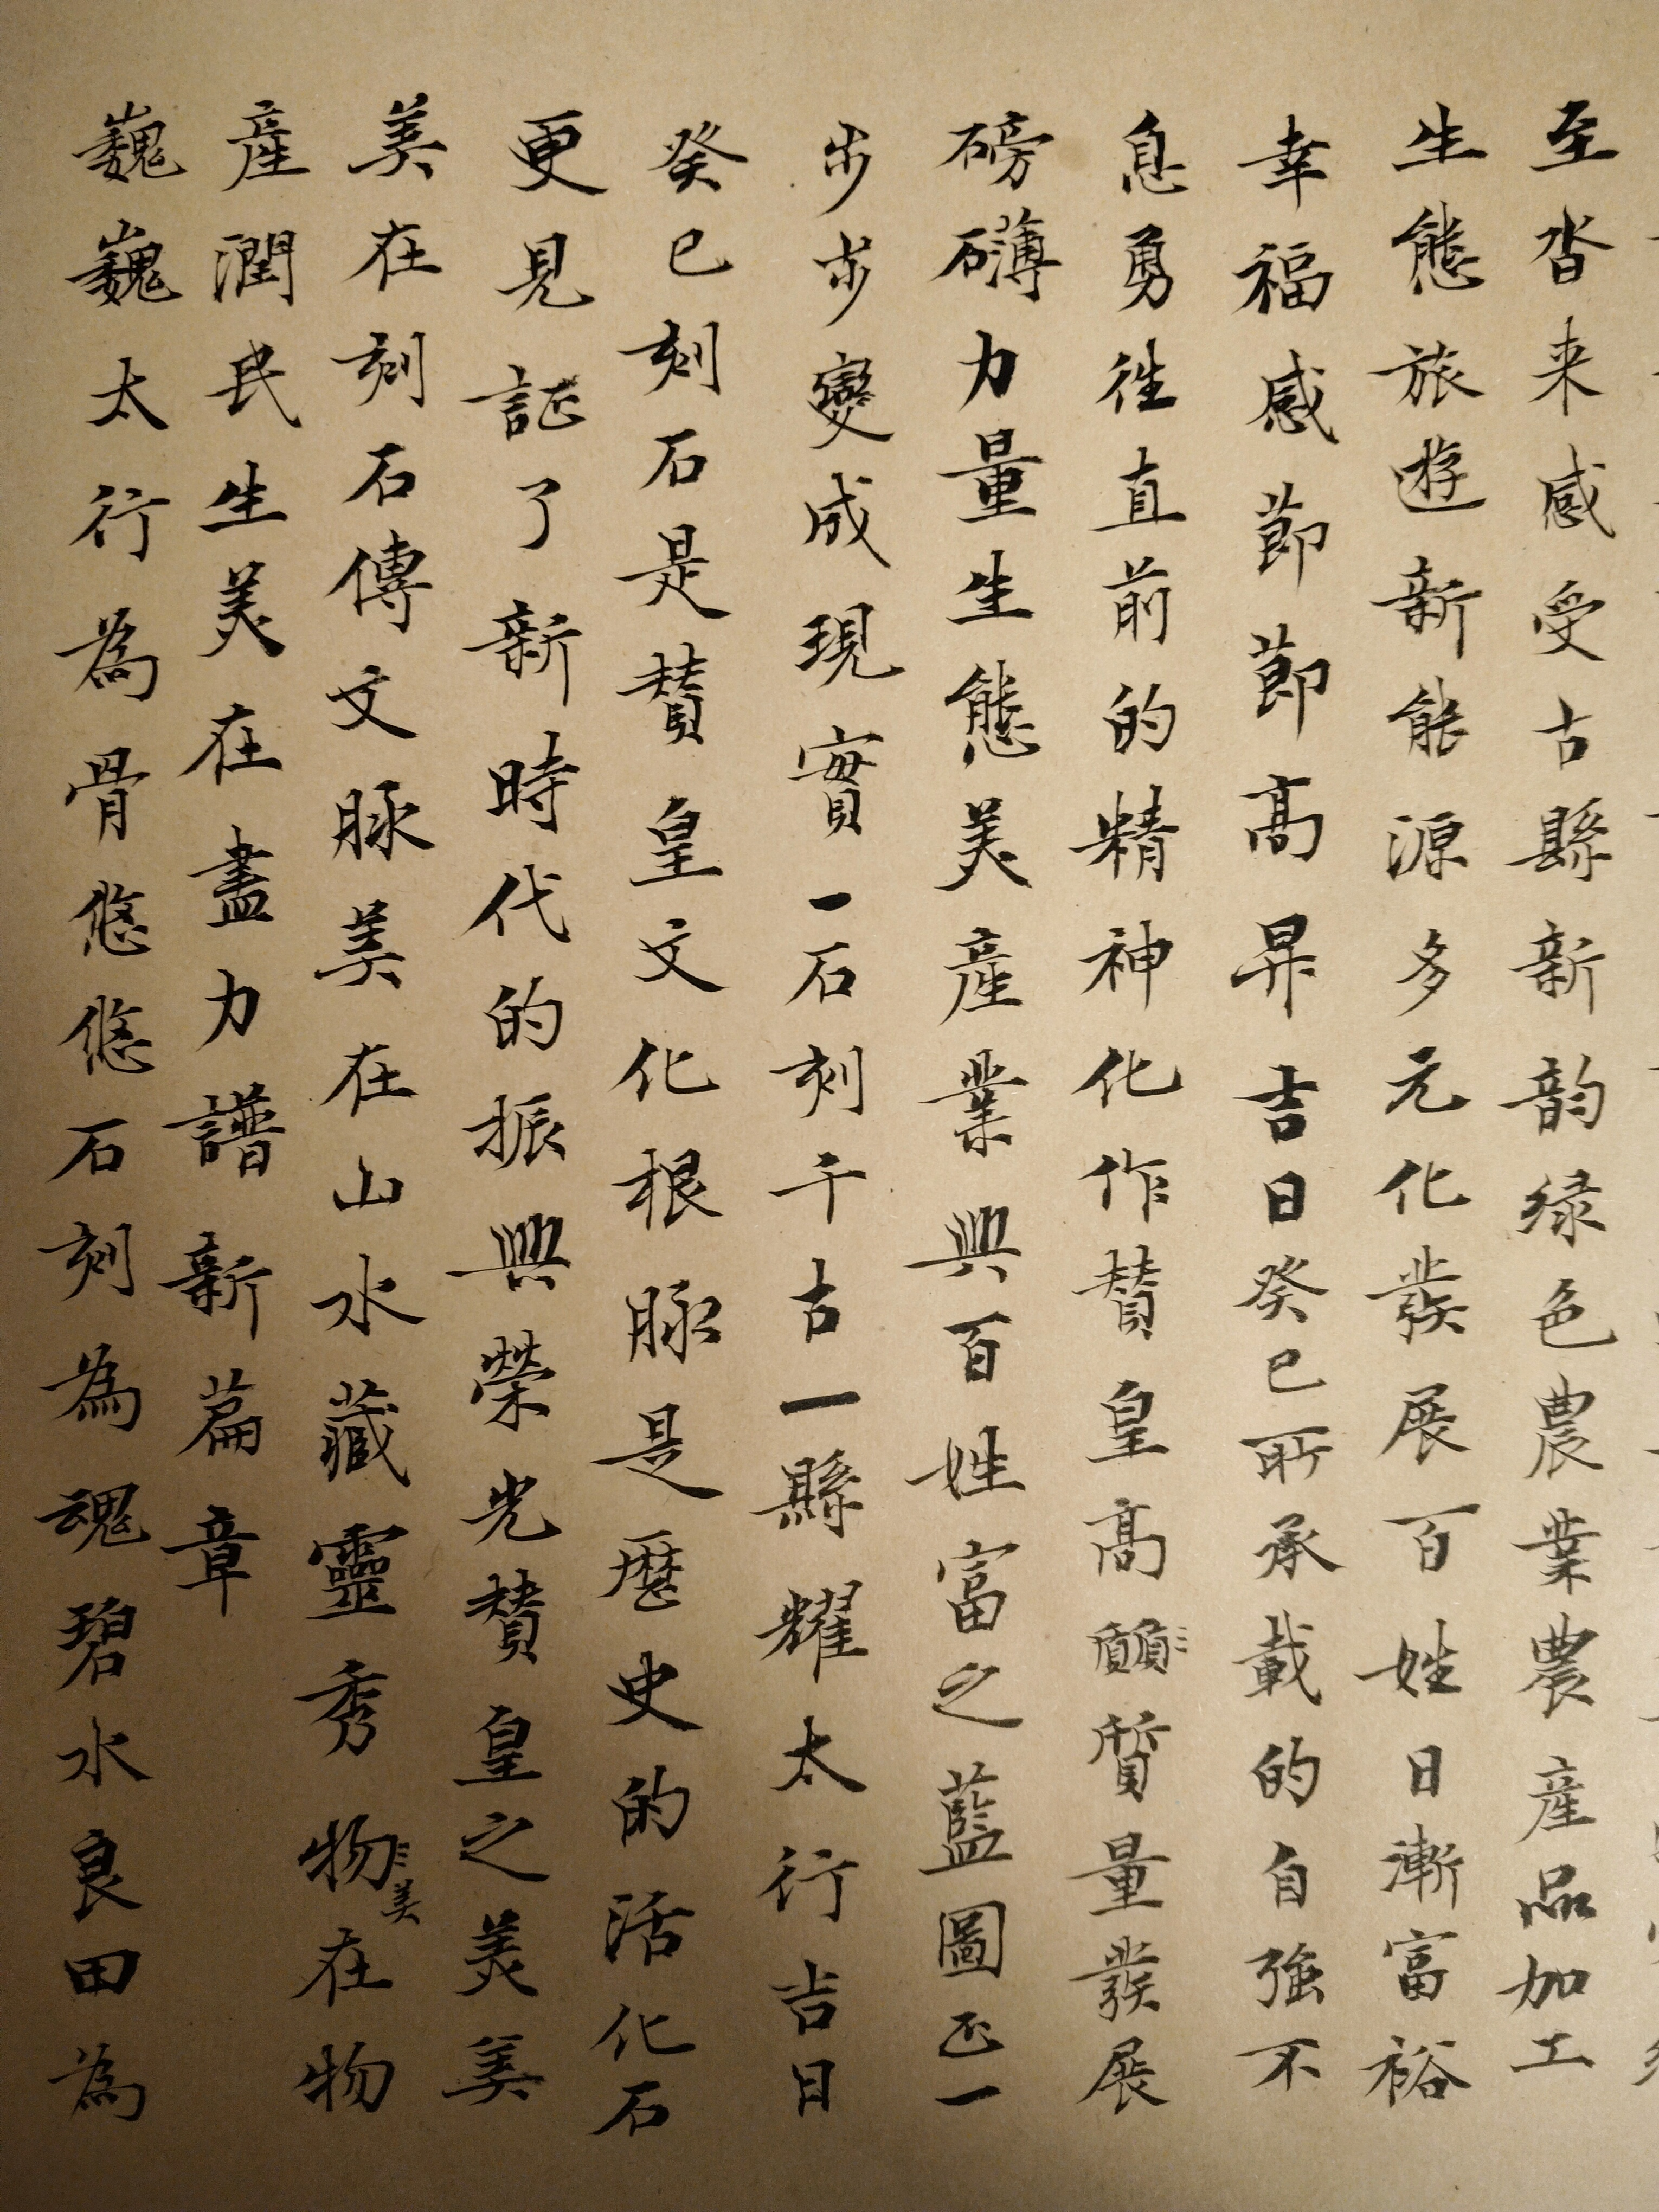 至沓来感受古縣新韵绿色農業農産品加工
生態旅遊新能源多元化發展百姓日漸富裕
幸福感節節高昇吉日癸巳所承載的自強不
息勇往直前的精神化作賛皇高願質量發展
磅礴力量生態美産業興百姓富之藍圖正一
步步變成現實一石刻千古一縣耀太行吉日
癸巳刻石是賛皇文化根脉是歷史的活化石
更見証了新時代的振興榮光賛皇之美美
美在刻石傳文脉美在山水藏靈秀物美在物
産潤民生美在盡力譜新篇章
巍巍太行為骨悠悠石刻為魂碧水良田為